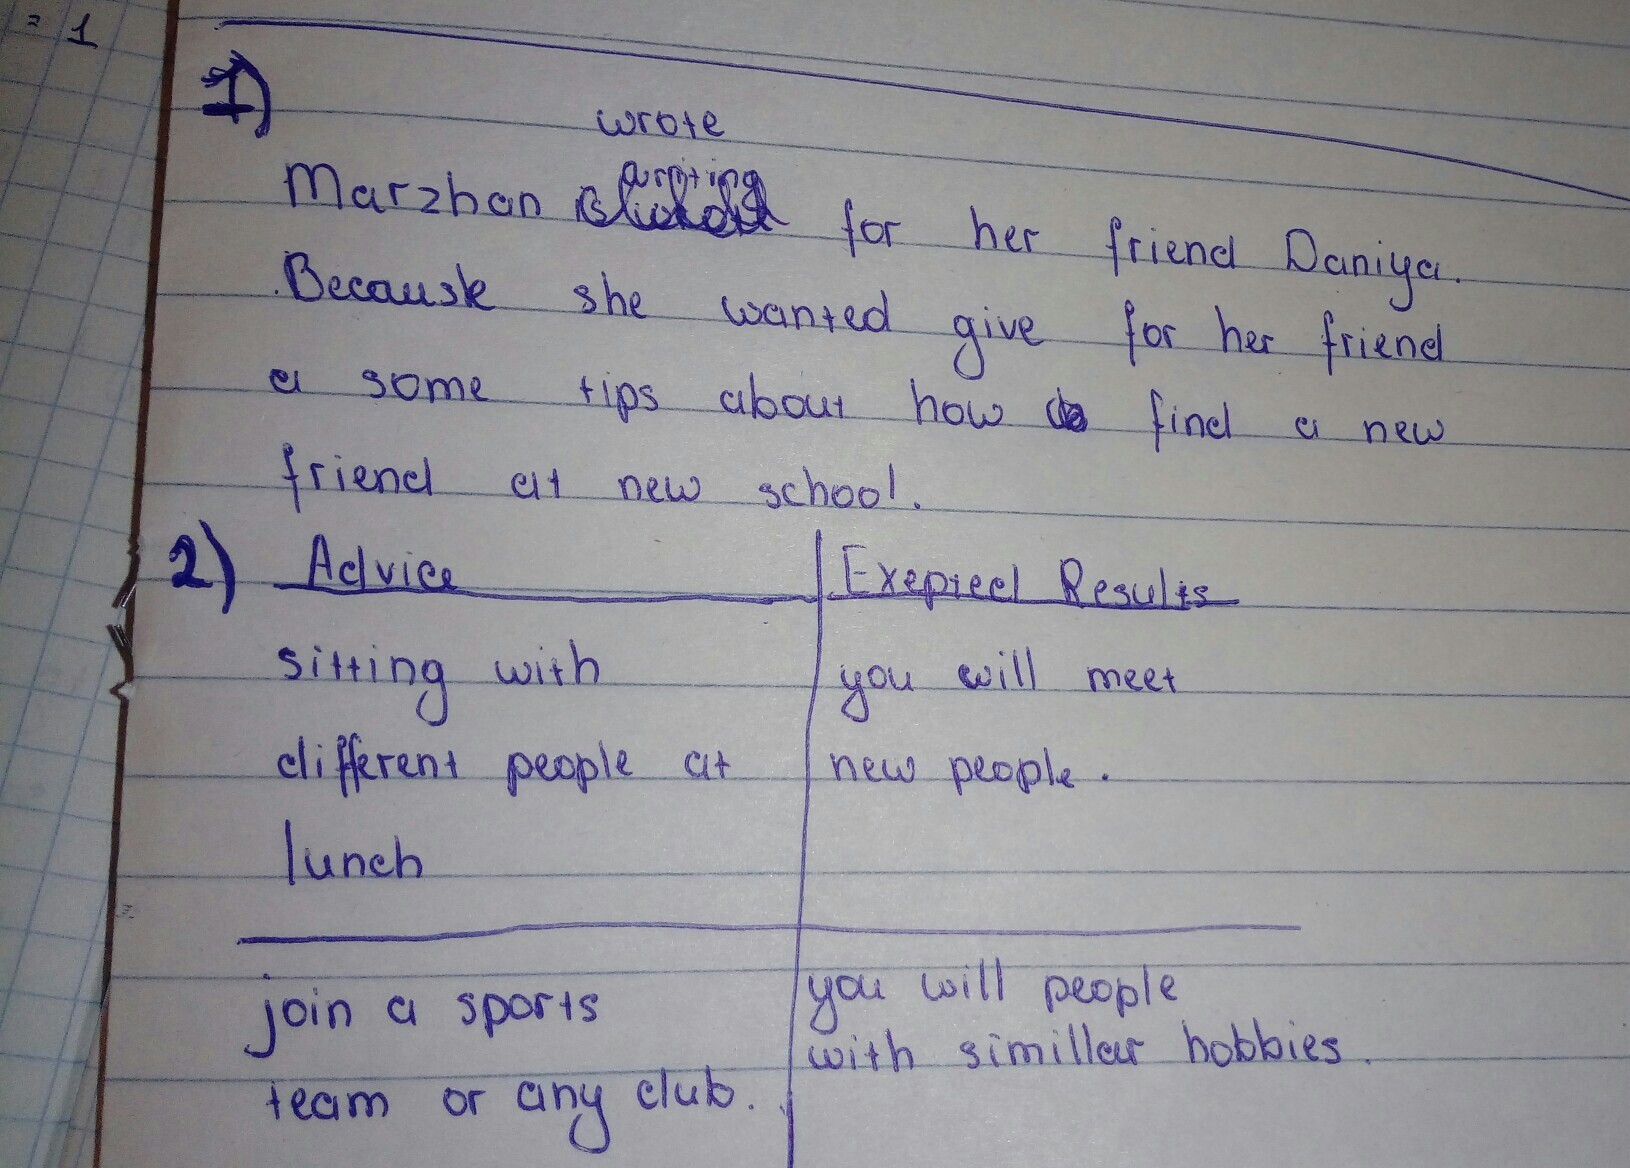 = 1
1)
wrote
Marzhan writing for her friend Daniya.
Because she wanted give for her friend
a some tips about how find a new
friend at new school.
2) Advice Exepieed Results
sitting with you will meet
different people at new people.
lunch
join a sports you will people
with simillar hobbies.
team or any club.